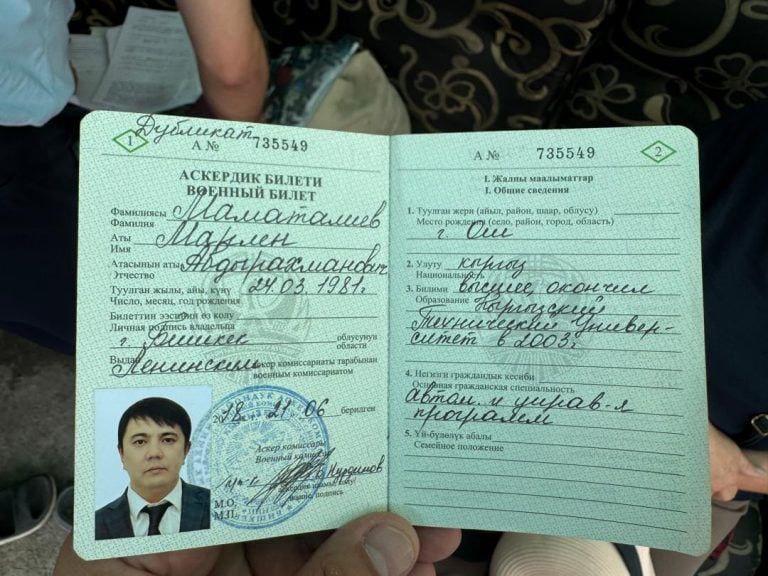 Дубликат
1
А № 735549
АСКЕРДИК БИЛЕТИ
ВОЕННЫЙ БИЛЕТ
Фамилиясы Маматалиев
Фамилия
Аты Марлен
Имя
Атасынын аты Абдырахманович
Отчество
Туулган жылы, айы, күнү 24.03.1981г
Число, месяц, год рождения
Билеттин ээсинин өз колу
Личная подпись владельца
г. Бишкек облусунун
области
Выдан Ленинским аскер комиссариаты тарабынан
военным комиссариатом
2018 21.06 берилген
Аскер комиссары
Военный комиссар
Нурдинов
звание, подпись
М.О.
М.П.
2
А № 735549
I. Жалпы маалыматтар
I. Общие сведения
1. Туулган жери (айыл, район, шаар, облусу)
Место рождения (село, район, город, область)
г. Ош
2. Улуту кыргыз
Национальность
3. Билими высшее, окончил
Образование Кыргызский
Технический универ-
ситет в 2003г.
4. Негизги граждандык кесиби
Основная гражданская специальность
автом. и управ-я
програмем
5. Үй-бүлөлүк абалы
Семейное положение